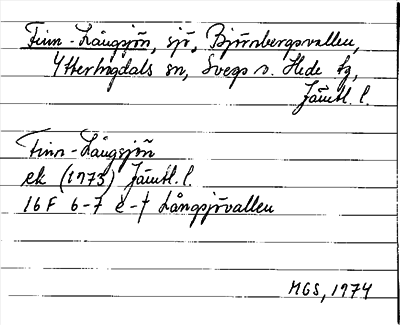 Finn-Långsjön, sjö, Björnbergsvallen,
Ytterhogdals sn, Svegs o. Hede tg,
Jämtl. l.
Finn-Långsjön
ek (1973) Jämtl. l.
16 F 6-7 e-f Långsjövallen
MGS, 1974